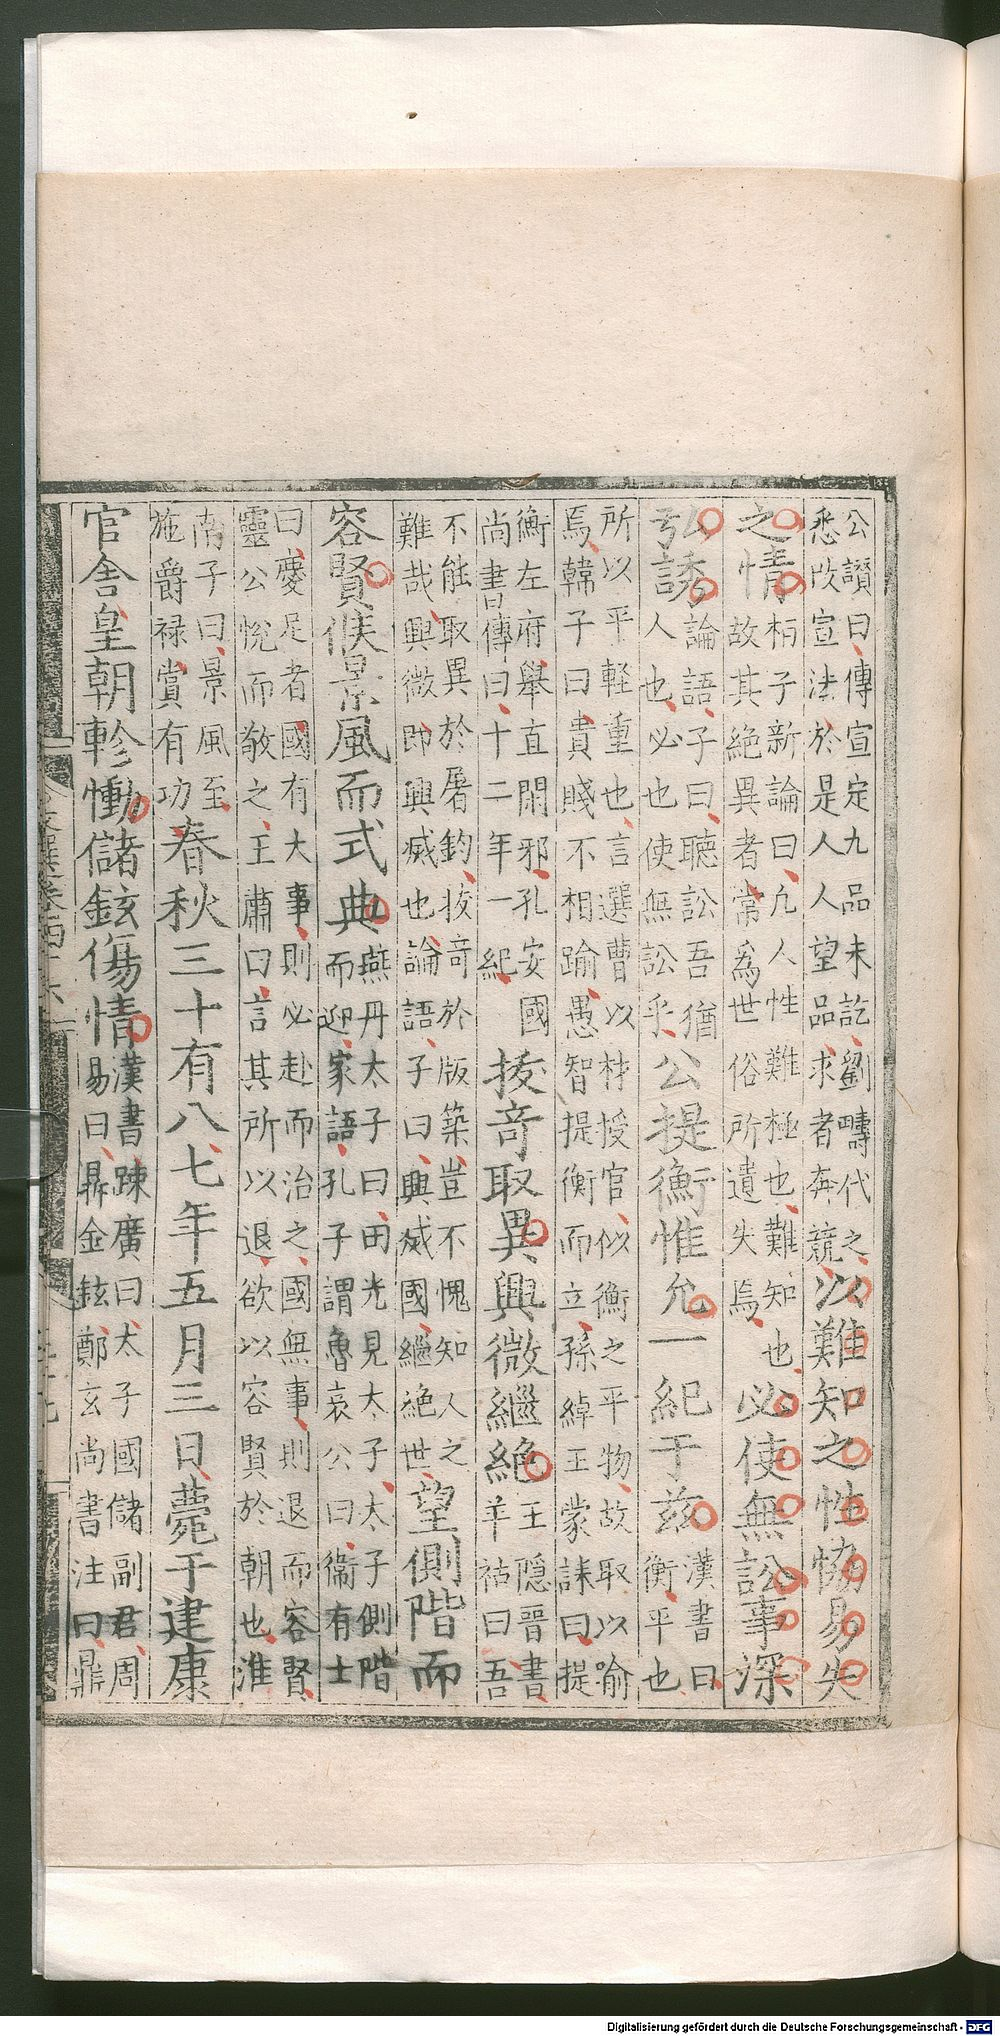 公讚曰傳宣定九品未訖劉疇代之
悉改宣法於是人人望品求者奔競以難知之性恊易失
之情桓子新論曰凡人性難極也難知也
故其絶異者常爲世俗所遺失焉必使無訟事深
弘誘論語子曰聽訟吾猶
人也必也使無訟乎公提衡惟允一紀于兹漢書曰
衡平也
所以平輕重也言選曹以材授官似衡之平物故取以喻
焉韓子曰貴賤不相踰愚智提衡而立孫綽王蒙誄曰提
衡左府舉直閑邪孔安國
尚書傳曰十二年一紀拔奇取異興微繼絶王隱晉書
羊祜曰吾
不能取異於屠釣拔奇於版築豈不愧知人之
難哉興微即興滅也論語子曰興滅國繼絶世望側階而
容賢候景風而式典燕丹太子曰田光見太子太子側階
而迎家語孔子謂魯哀公曰衞有士
曰慶足者國有大事則必赴而治之國無事則退而容賢
靈公悅而敬之王肅曰言其所以退欲以容賢於朝也淮
南子曰景風至
施爵禄賞有功春秋三十有八七年五月三日薨于建康
官舍皇朝軫慟儲鉉傷情漢書踈廣曰太子國儲副君周
易曰鼎金鉉鄭玄尚書注曰鼎
Digitalisierung gefördert durch die Deutsche Forschungsgemeinschaft - DFG